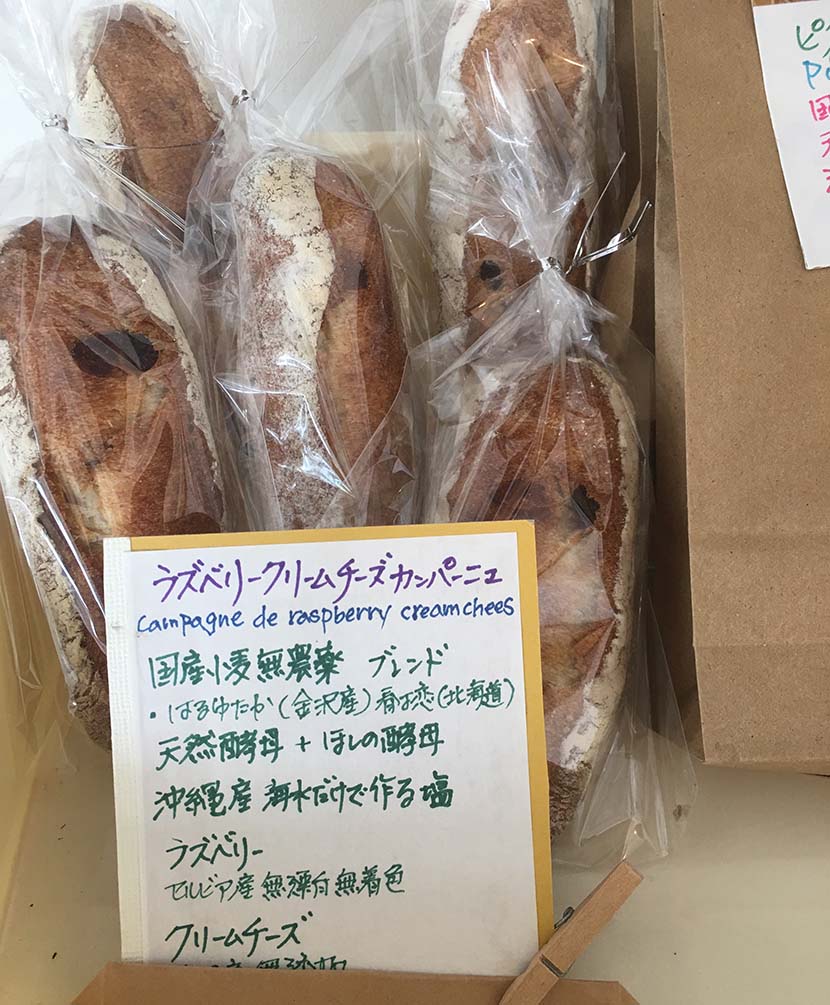 ラズベリークリームチーズカンパーニュ
campagne de raspberry creamchees
国産小麦無農薬 ブレンド
・はるゆたか(金沢産)春は恋(北海道)
天然酵母 + ほしの酵母
沖縄産 海水だけで作る塩
ラズベリー
セルビア産 無漂白 無着色
クリームチーズ
ピ
国
天